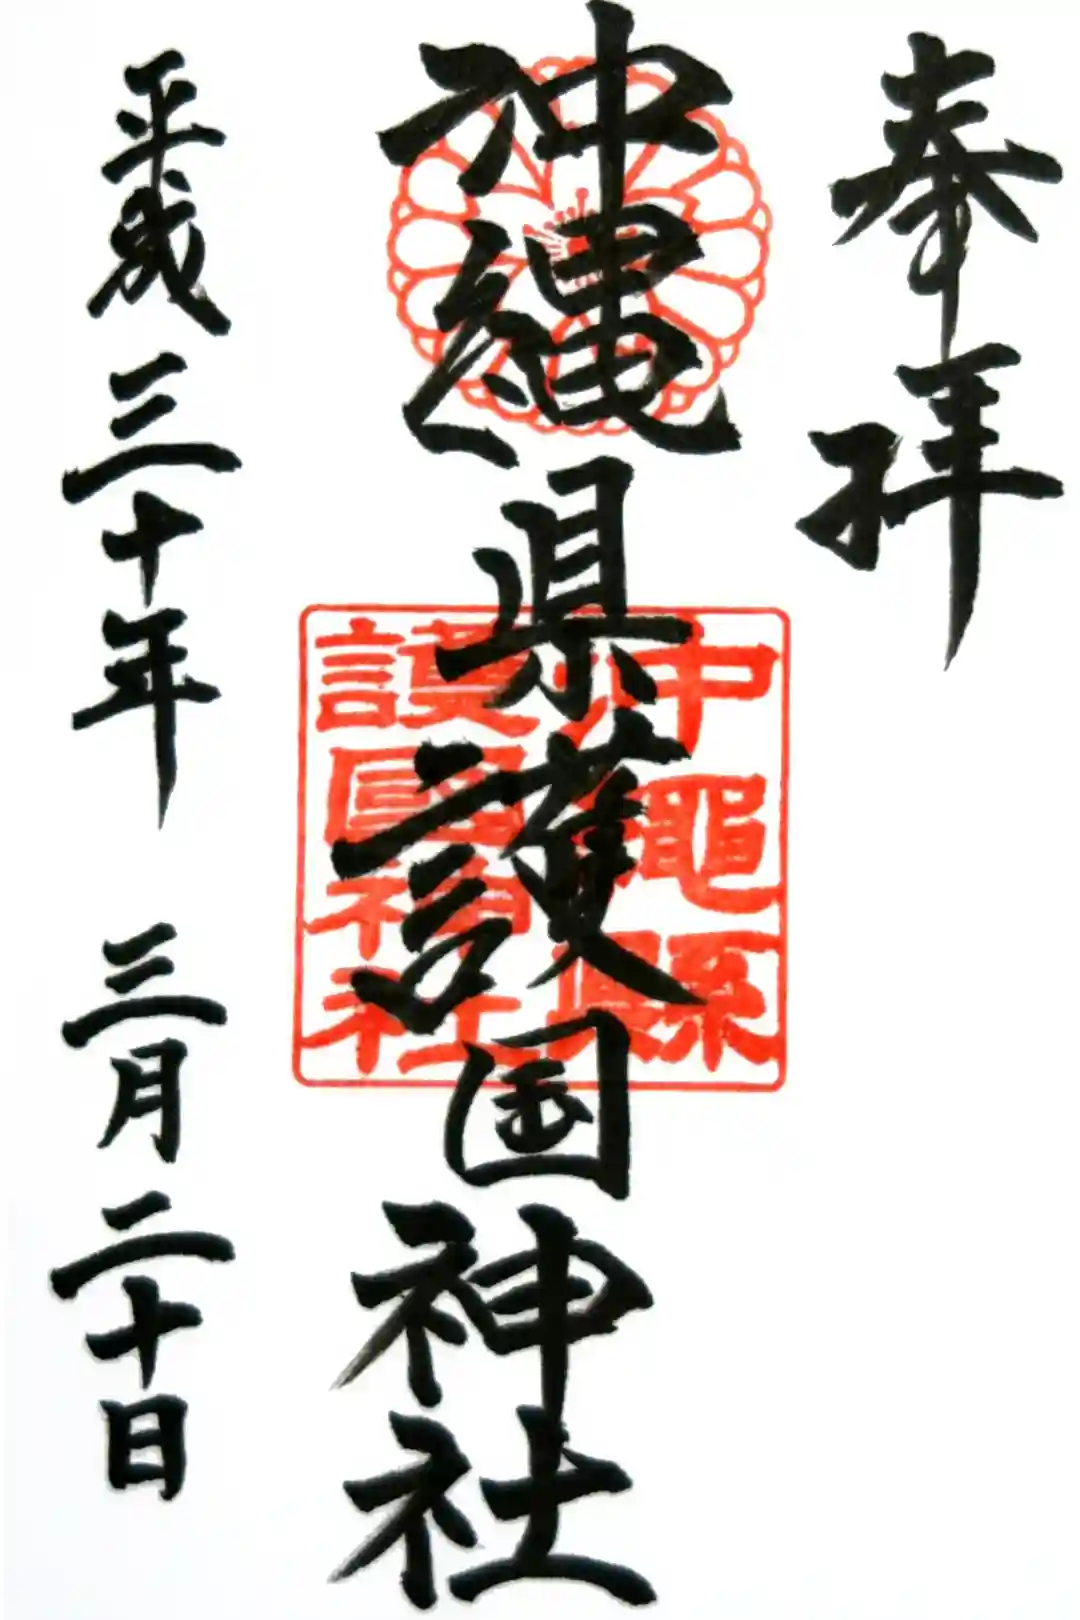 奉拝
沖縄県護国神社
沖縄縣
護國神社
平成三十年 三月二十日